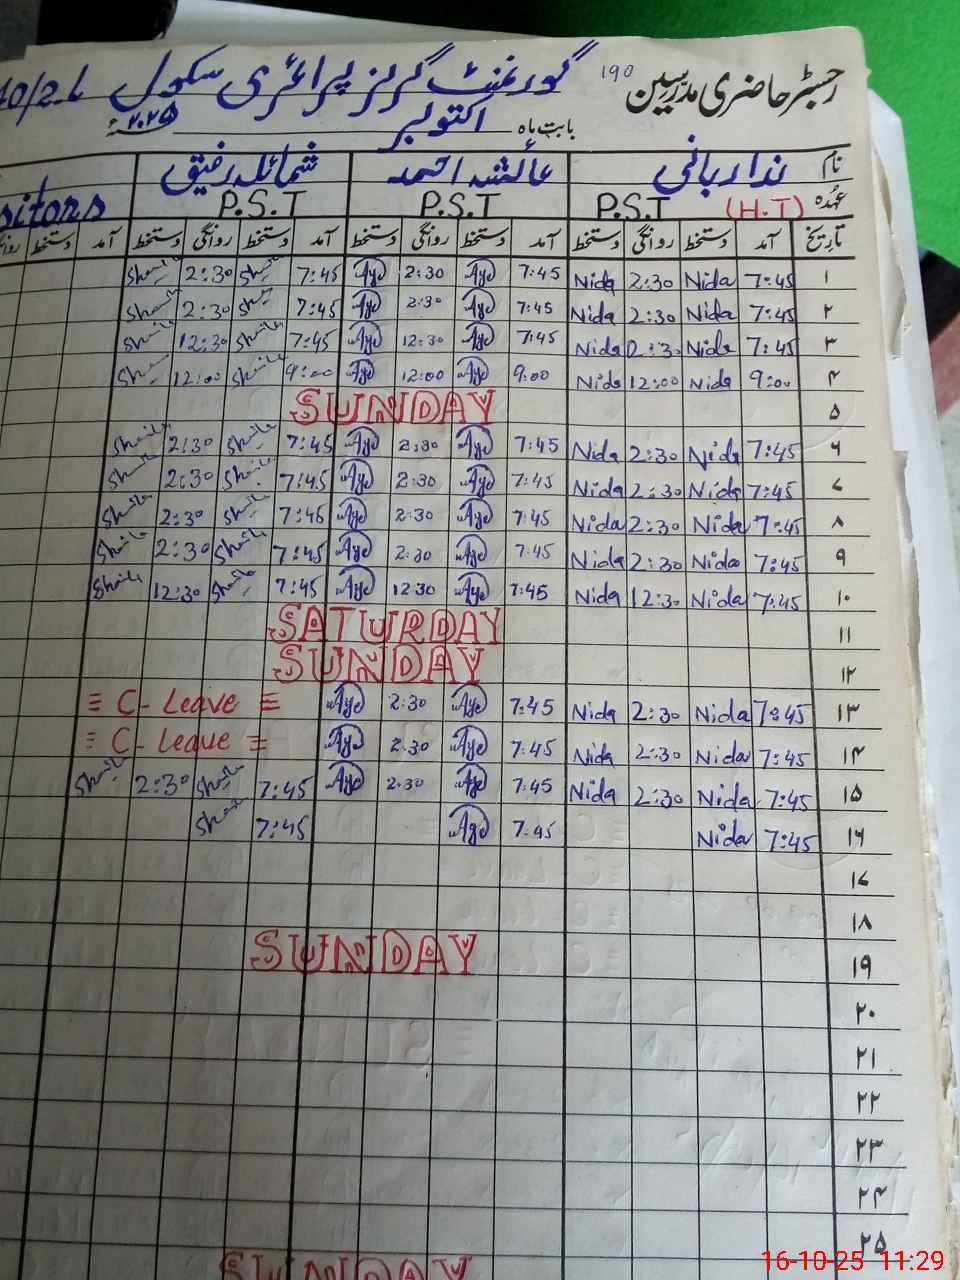 رجسٹر حاضری مدرسین 190 گورنمنٹ گرلز پرائمری سکول 40/2-L
بابت ماہ اکتوبر ۲۰۲۵
نام ندا ربانی عائشہ احمد شمائلہ رفیق
عہدہ P.S.T (H.T) P.S.T P.S.T
تاریخ آمد دستخط روانگی دستخط آمد دستخط روانگی دستخط آمد دستخط روانگی دستخط آمد دستخط
۱ 7:45 Nida 2:30 Nida 7:45 2:30 7:45 2:30
۲ 7:45 Nida 2:30 Nida 7:45 2:30 7:45 2:30
۳ 7:45 Nida Nida 7:45 12:30 7:45 12:30
۴ 9:00 Nida 12:00 Nida 9:00 12:00 9:00 12:00
۵ SUNDAY
۶ 7:45 Nida 2:30 Nida 7:45 2:30 7:45 2:30
۷ 7:45 Nida 2:30 Nida 7:45 2:30 7:45 2:30
۸ 7:45 Nida 2:30 Nida 7:45 2:30 7:45 2:30
۹ 7:45 Nida 2:30 Nida 7:45 2:30 7:45 2:30
۱۰ 7:45 Nida 12:30 Nida 7:45 12:30 7:45 12:30
۱۱ SATURDAY
۱۲ SUNDAY
۱۳ 7:45 Nida 2:30 Nida 7:45 2:30 C-Leave
۱۴ 7:45 Nida 2:30 Nida 7:45 2:30 C-Leave
۱۵ 7:45 Nida 2:30 Nida 7:45 2:30 7:45 2:30
۱۶ 7:45 Nida 7:45 7:45
۱۷
۱۸
۱۹ SUNDAY
۲۰
۲۱
۲۲
۲۳
۲۴
۲۵
SUNDAY
16-10-25 11:29